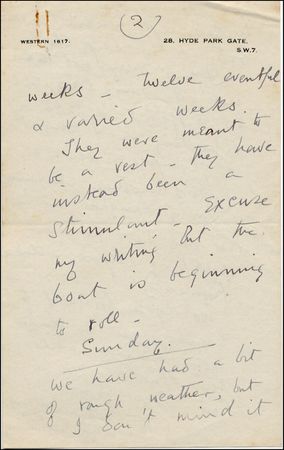 (2)
WESTERN 1617.
28, HYDE PARK GATE,
S.W.7.
weeks - Twelve eventful
& varied weeks.
They were meant to
be a rest - they have
instead been a
stimulant - Excuse
my writing but the
boat is beginning
to roll -
Sunday.
We have had a bit
of rough weather, but
I don't mind it